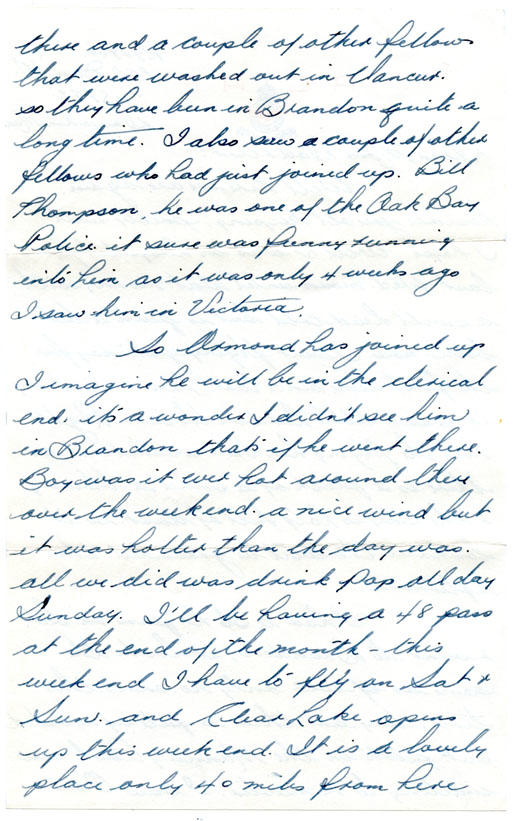 there and a couple of other fellows
that were washed out in Vancur.
so they have been in Brandon quite a
long time. I also saw a couple of other
fellows who had just joined up. Bill
Thompson, he was one of the Oak Bay
Police it sure was funny running
into him as it was only 4 weeks ago
I saw him in Victoria.
So Ormond has joined up
I imagine he will be in the clerical
end. it's a wonder I didn't see him
in Brandon that's if he went there.
Boy was it ever hot around there
over the weekend. a nice wind but
it was hotter than the day was.
all we did was drink pop all day
Sunday. I'll be having a 48 pass
at the end of the month - this
week end I have to fly on Sat &
Sun. and Clear Lake opens
up this week end. It is a lovely
place only 40 miles from here